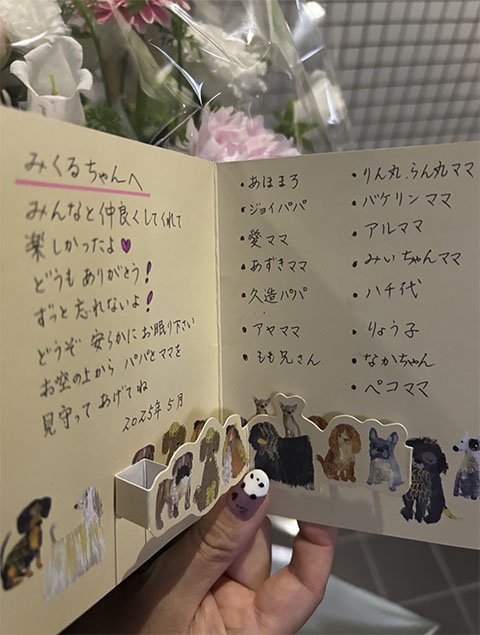 みくるちゃんへ
みんなと仲良くしてくれて
楽しかったよ♥
どうもありがとう!
ずっと忘れないよ!
どうぞ 安らかにお眠り下さい
お空の上から パパとママを
見守って あげてね
2025年5月
・あほまろ
・ジョイパパ
・愛ママ
・あずきママ
・久造パパ
・アヤママ
・もも兄さん
・りん丸、らん丸ママ
・バケリンママ
・アルママ
・みぃちゃんママ
・ハチ代
・りょう子
・なかちゃん
・ペコママ